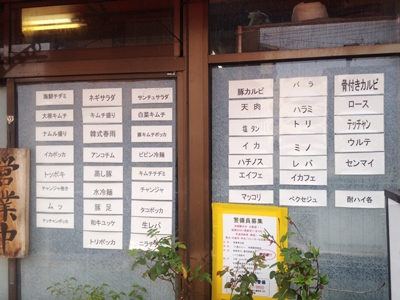 海鮮チヂミ
ネギサラダ
サンチュサラダ
大根キムチ
キムチ盛り
白菜キムチ
ナムル盛り
韓式春雨
豚キムチポッカ
イカポッカ
アンコチム
ビビン冷麺
トッポキ
蒸し豚
キムチチヂミ
チャンジャ巻き
水冷麺
チャンジャ
ムッ
豚足
タコポッカ
和牛ユッケ
生レバ
トリポッカ
営業中
豚カルビ
バラ
骨付きカルビ
天肉
ハラミ
ロース
塩タン
トリ
テッチャン
イカ
ミノ
ウルテ
ハチノス
レバ
センマイ
エイフェ
イカフェ
マッコリ
ペクセジュ
酎ハイ各
警備員募集